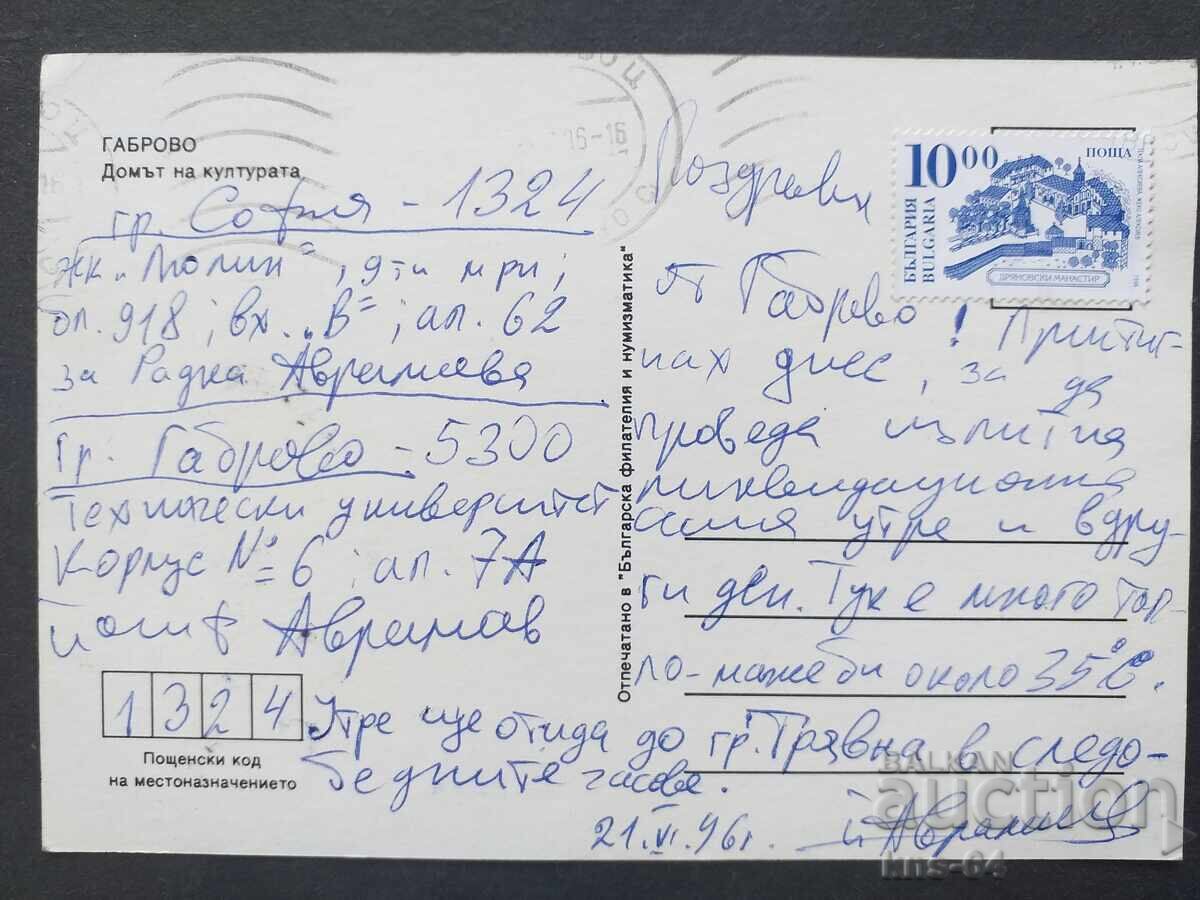 ГАБРОВО
Домът на културата
гр. София - 1324
жк „Люлин", 9ти мрн;
бл. 918; вх. „В"; ап. 62
за Радка Аврамова
гр. Габрово - 5300
Технически университет
Корпус № 6; ап. 7А
Йосиф Аврамов
1324
Пощенски код
на местоназначението
Отпечатано в "Българска филателия и нумизматика"
16-16
10 00
ПОЩА
БЪЛГАРИЯ
BULGARIA
ДРЯНОВСКИ МАНАСТИР
Поздрави
от Габрово! Пристиг-
нах днес, за да
проведа изпитна
ликвидационна
сесия утре и в дру-
ги ден. Тук е много топ-
ло - може би около 35°C.
Утре ще отида до гр. Трявна в следо-
бедните часове.
21.VI.96г.
Й Аврамов
BALKAN
auction
kns-64